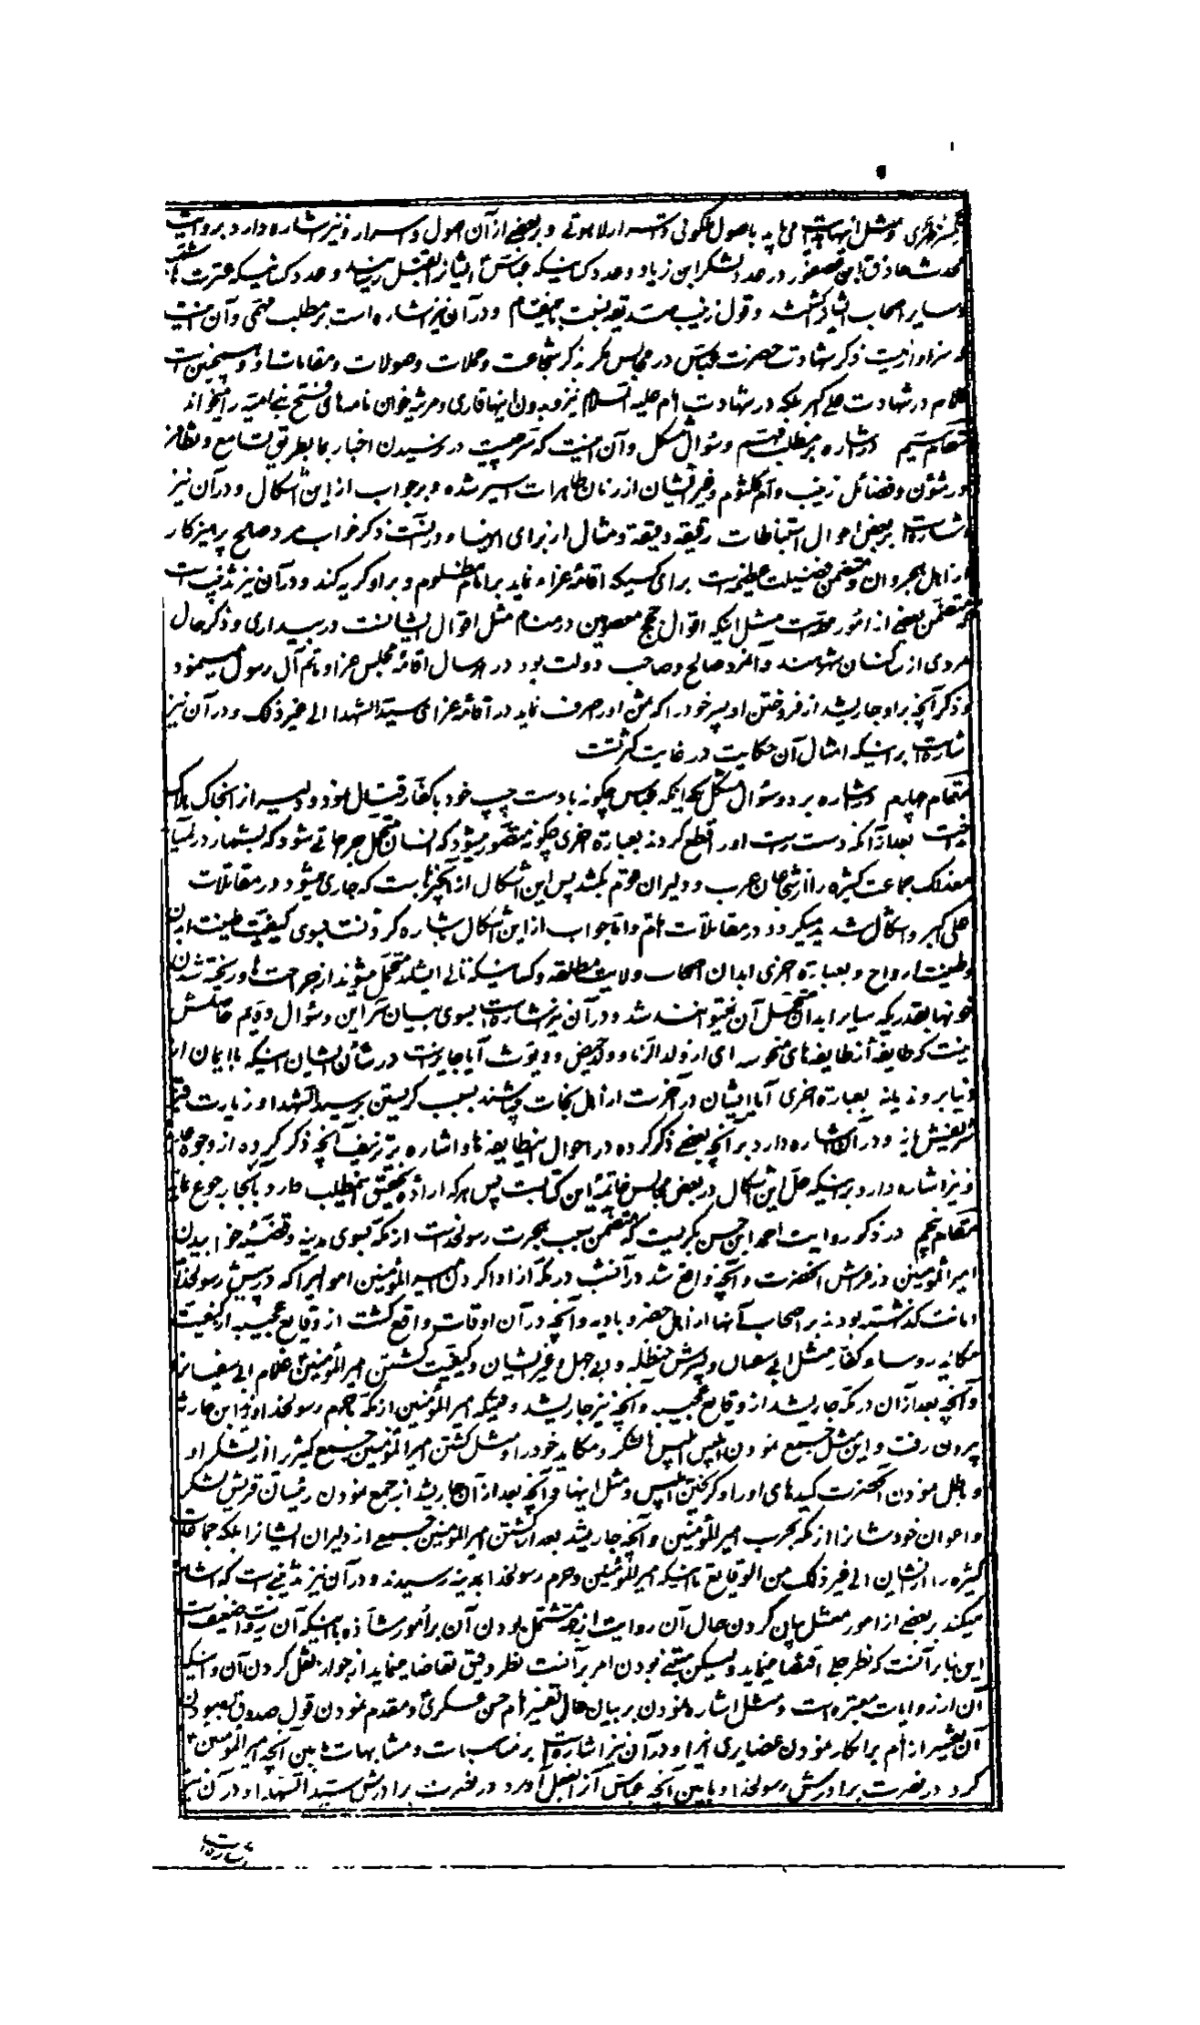 و مثل اینها می یابد باصول ملکوتی و اسرار لاهوتی و بر بعضی از آن اصول و اسرار نیز اشاره دارد بروایت
در عدد لشکر ابن زیاد و عدد کسانیکه عباس ایشانرا بقتل رسانید و عدد کسانیکه
و سایر اصحاب ایشانرا کشتند و قول زینب صدیقه و در آن نیز اشاره است بر مطلب مهمی و آن اینست
که سزاوار نیست ذکر شهادت حضرت عباس در مجالس مگر بذکر شجاعت و حملات و صولات و مقامات او و همچنین است
کلام در شهادت علی اکبر بلکه در شهادت امام علیه السلام نیز و بدون اینها قاری و مرثیه خوان نامه های فتح بنی امیه را میخواند
مقام سیم در اشاره بر مطلب مهم و سؤال مشکل و آن اینست که سر چیست در نرسیدن اخبار بما بطریق تسامع و تظافر
در شئون و فضائل زینب و ام کلثوم و غیر ایشان از زنان طاهرات اسیر شده و بر جواب از این اشکال و در آن نیز
اشارتست بر بعض احوال استنباطات رقیقه دقیقه و مثال از برای اینها و در آنست ذکر خواب مرد صالح پرهیزکار
از اهل بحرین و آن متضمن فضیلت عظیمه است برای کسیکه اقامه عزاء نماید برای امام مظلوم و بر او گریه کند و در آن نیز تذنیب است
که متضمن بعضی از امور مهمه است مثل اینکه اقوال حجج معصومین در منام مثل اقوال ایشانست در بیداری و ذکر حال
مردی از ساکنان شهر هند و آنمرد صالح و صاحب دولت بود در هر سال اقامه مجلس عزا و ماتم آل رسول مینمود
و ذکر آنچه بر او جاری شد از فروختن او پسر خود را که ثمن او را صرف نماید در اقامه عزای سید الشهدا الی غیر ذلک و در آن نیز
اشارتست بر اینکه امثال آن حکایت در غایت کثرتست
مقام چهارم در اشاره بر دو سؤال مشکل یکی اینکه عباس چگونه با دست چپ خود با کفار قتال نمود و بسیار از ایشان بخاک هلاک
انداخت بعد از آنکه دست راست او را قطع کردند بعباره اخری چگونه متصور میشود که انسان متحمل جراحاتی شود که بیشمار در نمیآید
معذلک جماعت کثیره را از شجاعان عرب و دلیران قوم بکشد پس این اشکال از آن چیزهائیست که جاری میشود در مقاتلات
علی اکبر و اشکال شدید میگردد در مقاتلات امام و اما جواب از این اشکال اشاره کردنست بسوی کیفیت طینت ابدان
و طینت ارواح و بعباره اخری ابدان اصحاب ولایت مطلقه و کسانیکه تالی ایشانند متحمل میشوند از جراحت ها و ریخته شدن
خونها بقدریکه سایر ابدان متحمل آن نخواهند شد و در آن نیز اشارتست بسوی بیان سر این و سؤال دویم حاصلش
اینست که طایفه از طایفه های منحوسه ای از ولد الزنا و ولد حیض و دیوث آیا جایز است در شأن ایشان اینکه با ایمان از
دنیا بروند یا نه بعباره اخری آیا ایشان در آخرت از اهل نجات میباشند بسبب گریستن بر سید الشهدا و زیارت قبر
شریفش یا نه و در آن اشاره دارد بر آنچه بعضی ذکر کرده در احوال این طایفه ها و اشاره بتزییف آنچه ذکر کرده از وجوه
و نیز اشاره دارد بر اینکه حل این اشکال در بعض مجالس خاتمه این کتابست پس هر که اراده تحقیق این مطلب دارد بآنجا رجوع نماید
مقام پنجم در ذکر روایت احمد ابن حسن بکریست که متضمن سبب هجرت رسولخداست از مکه بسوی مدینه و قضیه خوابیدن
امیر المؤمنین در فراش آنحضرت و آنچه واقع شد در آنشب در مکه از ادا کردن امیر المؤمنین اموالیرا که در پیش رسولخدا
امانت گذاشته بودند بر اصحاب آنها از اهل حضر و بادیه و آنچه در آن اوقات واقع گشت از وقایع عجیبه از کیفیت
مکاید رؤسا و کفار مثل ابی سفیان و پسرش حنظله و ابی جهل و غیر ایشان و کیفیت کشتن امیر المؤمنین غلام ابی سفیان
و آنچه بعد از آن در مکه جاری شد از وقایع عجیبه و آنچه نیز جاری شد وقتیکه امیر المؤمنین از مکه با حرم رسولخدا
بیرون رفت و این مثل جمع نمودن ابلیس لشکر و مکاید خود را و مثل کشتن امیر المؤمنین جمع کثیر را از لشکر او
و باطل نمودن آنحضرت کیدهای او را و گریختن ابلیس و مثل اینها و آنچه بعد از آن جاری شد از جمع نمودن رئیسان قریش لشکر
و اعوان خودشانرا از مکه بحرب امیر المؤمنین و آنچه جاری شد بعد از کشتن امیر المؤمنین جمعی از دلیران ایشانرا بلکه جماعات
کثیره را از ایشان الی غیر ذلک من الوقایع تا اینکه امیر المؤمنین و حرم رسولخدا بمدینه رسیدند و در آن نیز تذنیبی است که اشاره
میکند بر بعضی از امور مثل بیان کردن حال آن روایت از جهت مشتمل بودن آن بر امور شاذه با اینکه آن روایت ضعیفست
این بنا بر آنست که نظر جلی اقتضا مینماید و لیکن مبتنی نبودن امر بر آنست نظر دقیق تقاضا مینماید از جواز نقل کردن آن و اینکه
آن از روایات معتبره است و مثل اشاره نمودن بر بیان حال تفسیر امام حسن عسکری و مقدم نمودن قول صدوق
آن تفسیر از امام بر انکار نمودن غضایری آنرا و در آن نیز اشارتست بر مناسبات و مشابهات مابین آنچه امیر المؤمنین
کرد در نصرت برادرش رسولخدا و مابین آنچه عباس آنرا بفعل آورد در نصرت برادرش سید الشهدا و در آن نیز
اشارتست